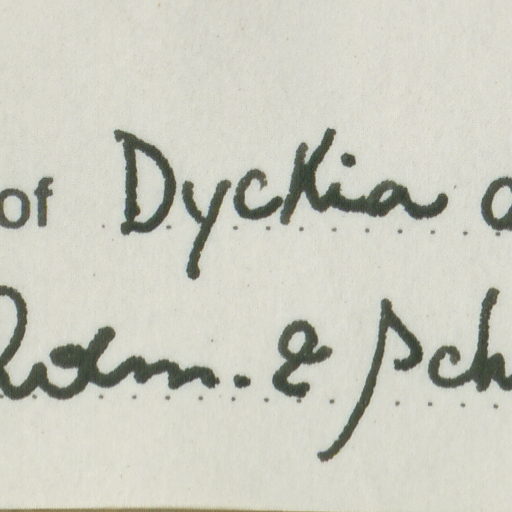 of Dyckia
Roem. & Sch